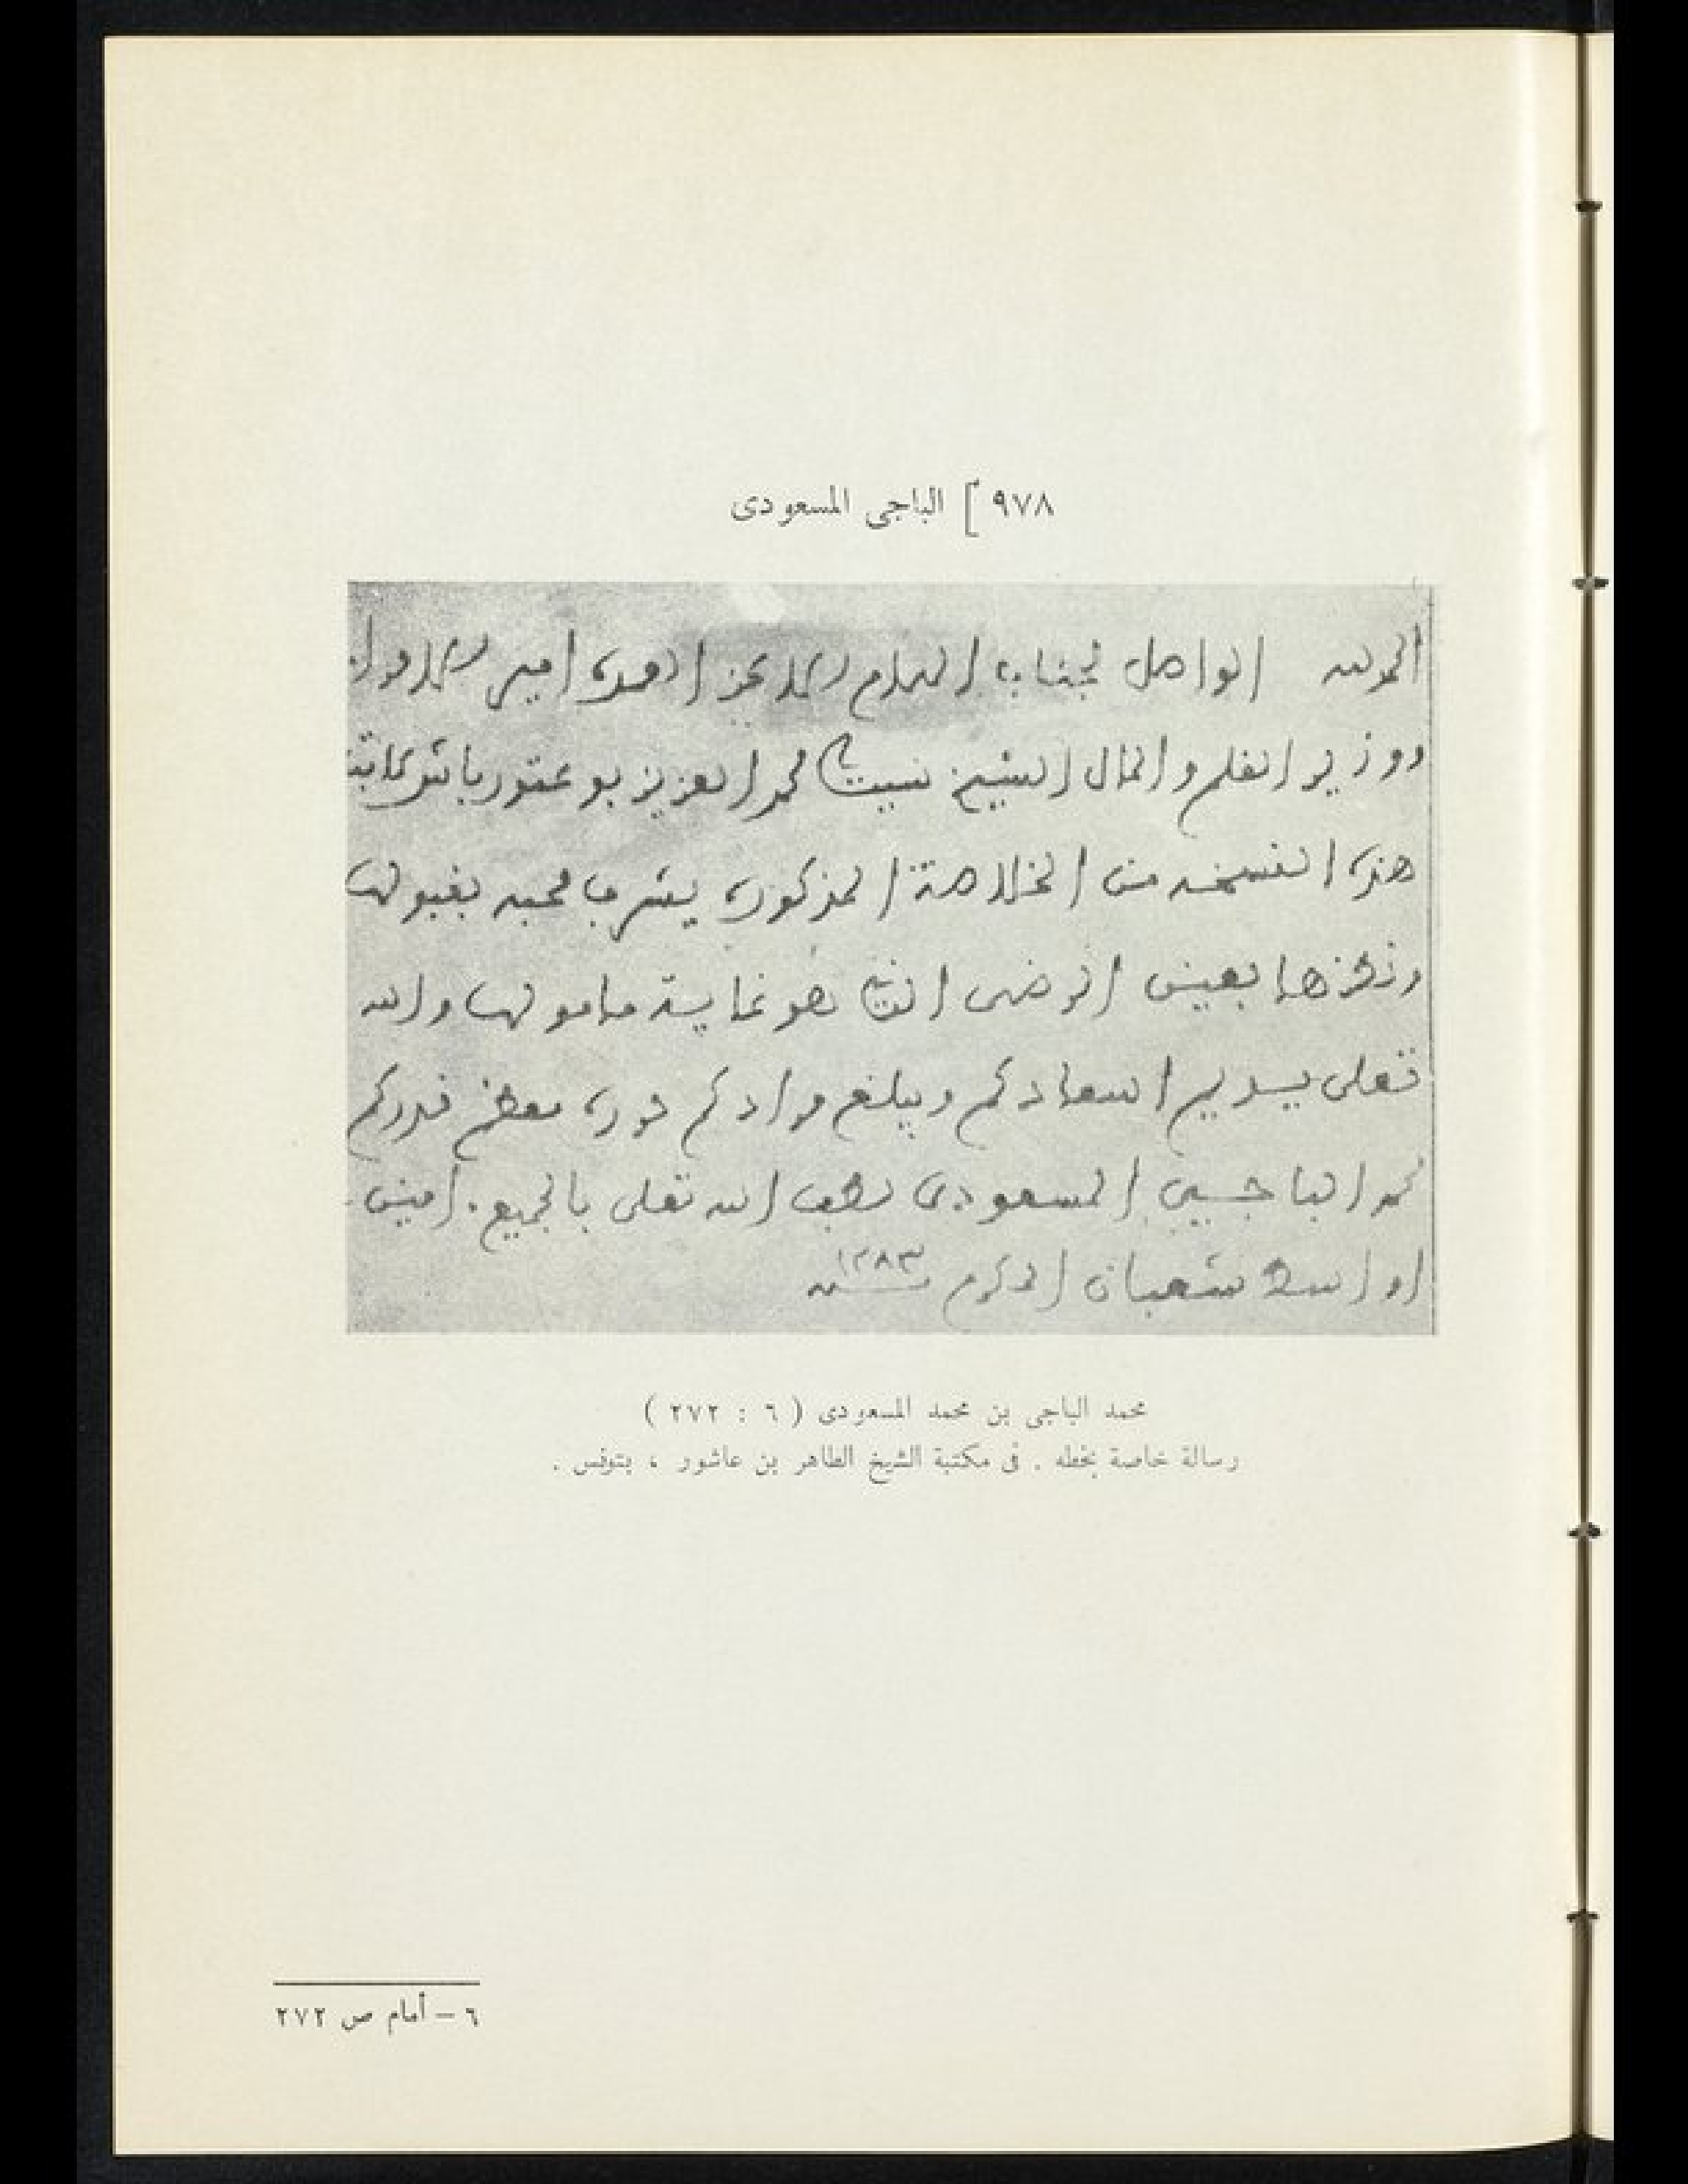 ٩٧٨ ] الباجى المسعودى
الحمد لله الواصل لجناب الهمام الاعز العمدة امير الامرا
ووزير القلم والمال الشيخ سيدي محمد العزيز بو عتور باش كاتب
هذه النسخة من الخلاصة المذكورة يشرف محبه بقبولها
ونظرها بعين الرضى الذي هو غاية مامولها والله
تعلى يديم اسعادكم ويبلغ مرادكم حرره معظم قدركم
محمد الباجي المسعودي لطف الله تعلى بالجميع . امين
اواسط شعبان الاكرم سنة ١٢٨٣
محمد الباجى بن محمد المسعودى ( ٦ : ٢٧٢ )
رسالة خاصة بخطه . فى مكتبة الشيخ الطاهر بن عاشور ، بتونس .
٦ – أمام ص ٢٧٢